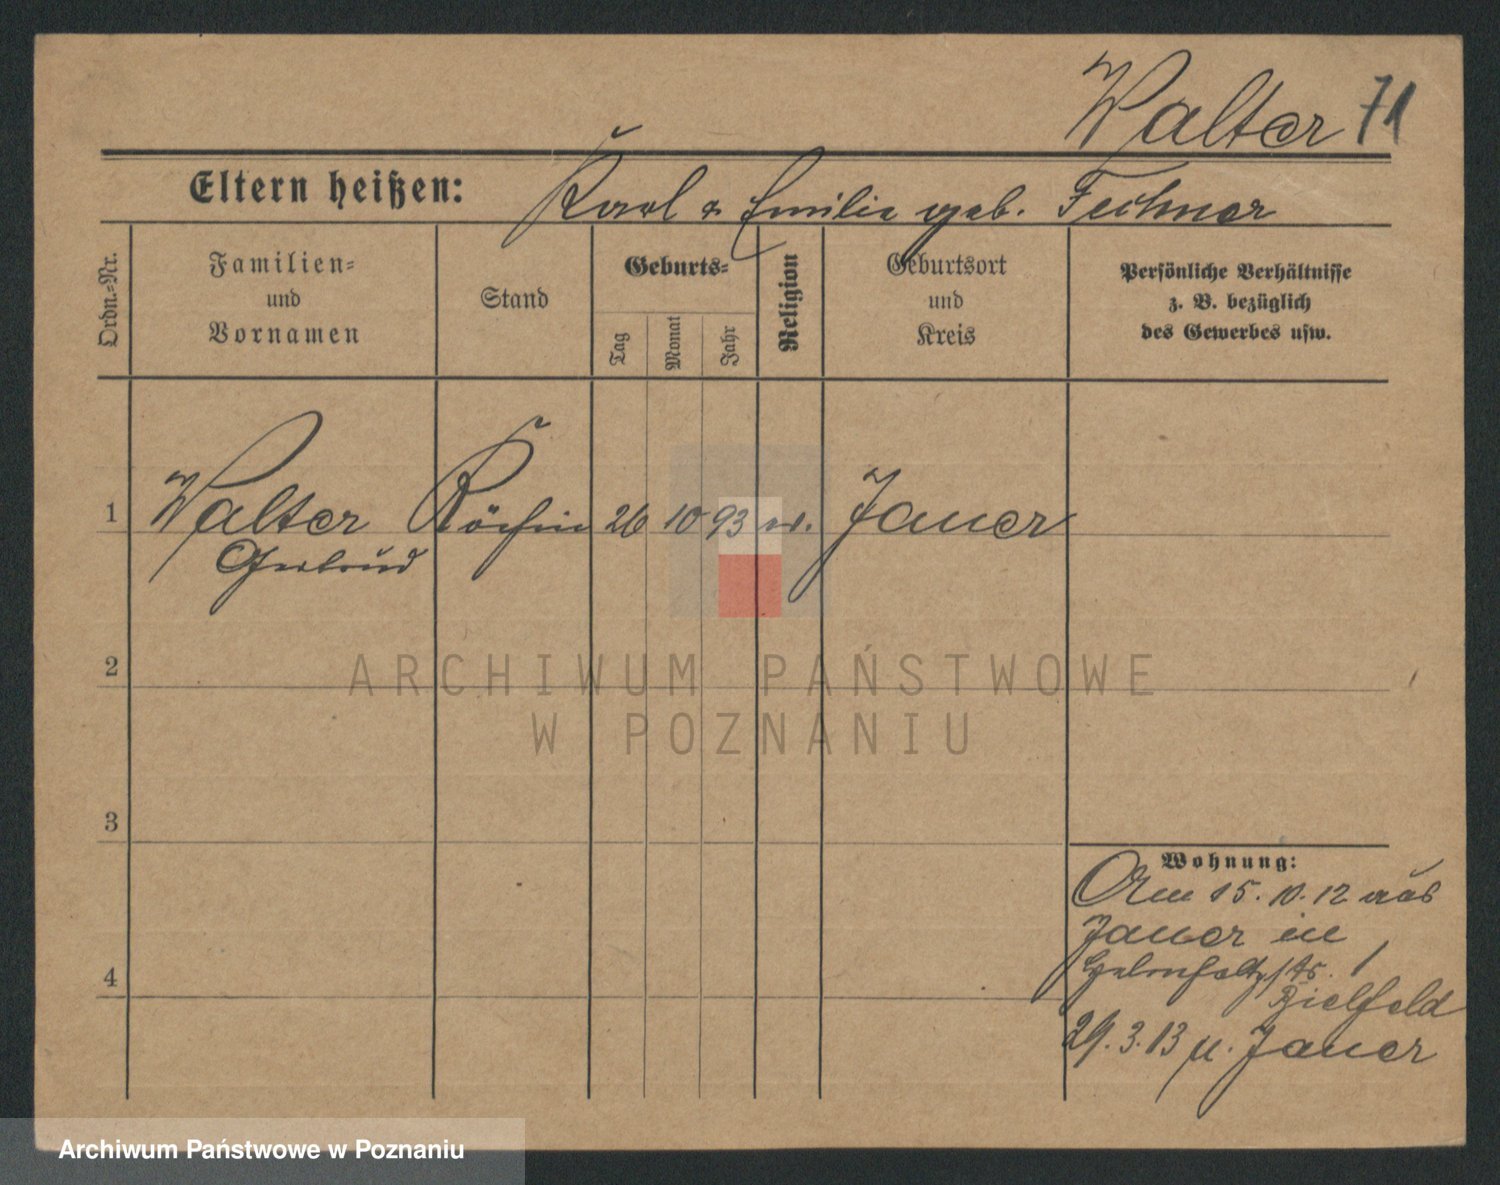 Walter 71
Eltern heißen: Karl & Emilie geb. Fechner
Ordn.-Nr.
Familien-
und
Vornamen
Stand
Geburts-
Tag
Monat
Jahr
Religion
Geburtsort
und
Kreis
Persönliche Verhältnisse
z. B. bezüglich
des Gewerbes usw.
1 Walter Köchin 26 10 93 ev. Jauer
Gertrud
2
ARCHIWUM PAŃSTWOWE
W POZNANIU
3
4
Wohnung:
Am 15. 10. 12 aus
Jauer in
1
Bielfeld
29. 3. 13 n. Jauer
Archiwum Państwowe w Poznaniu